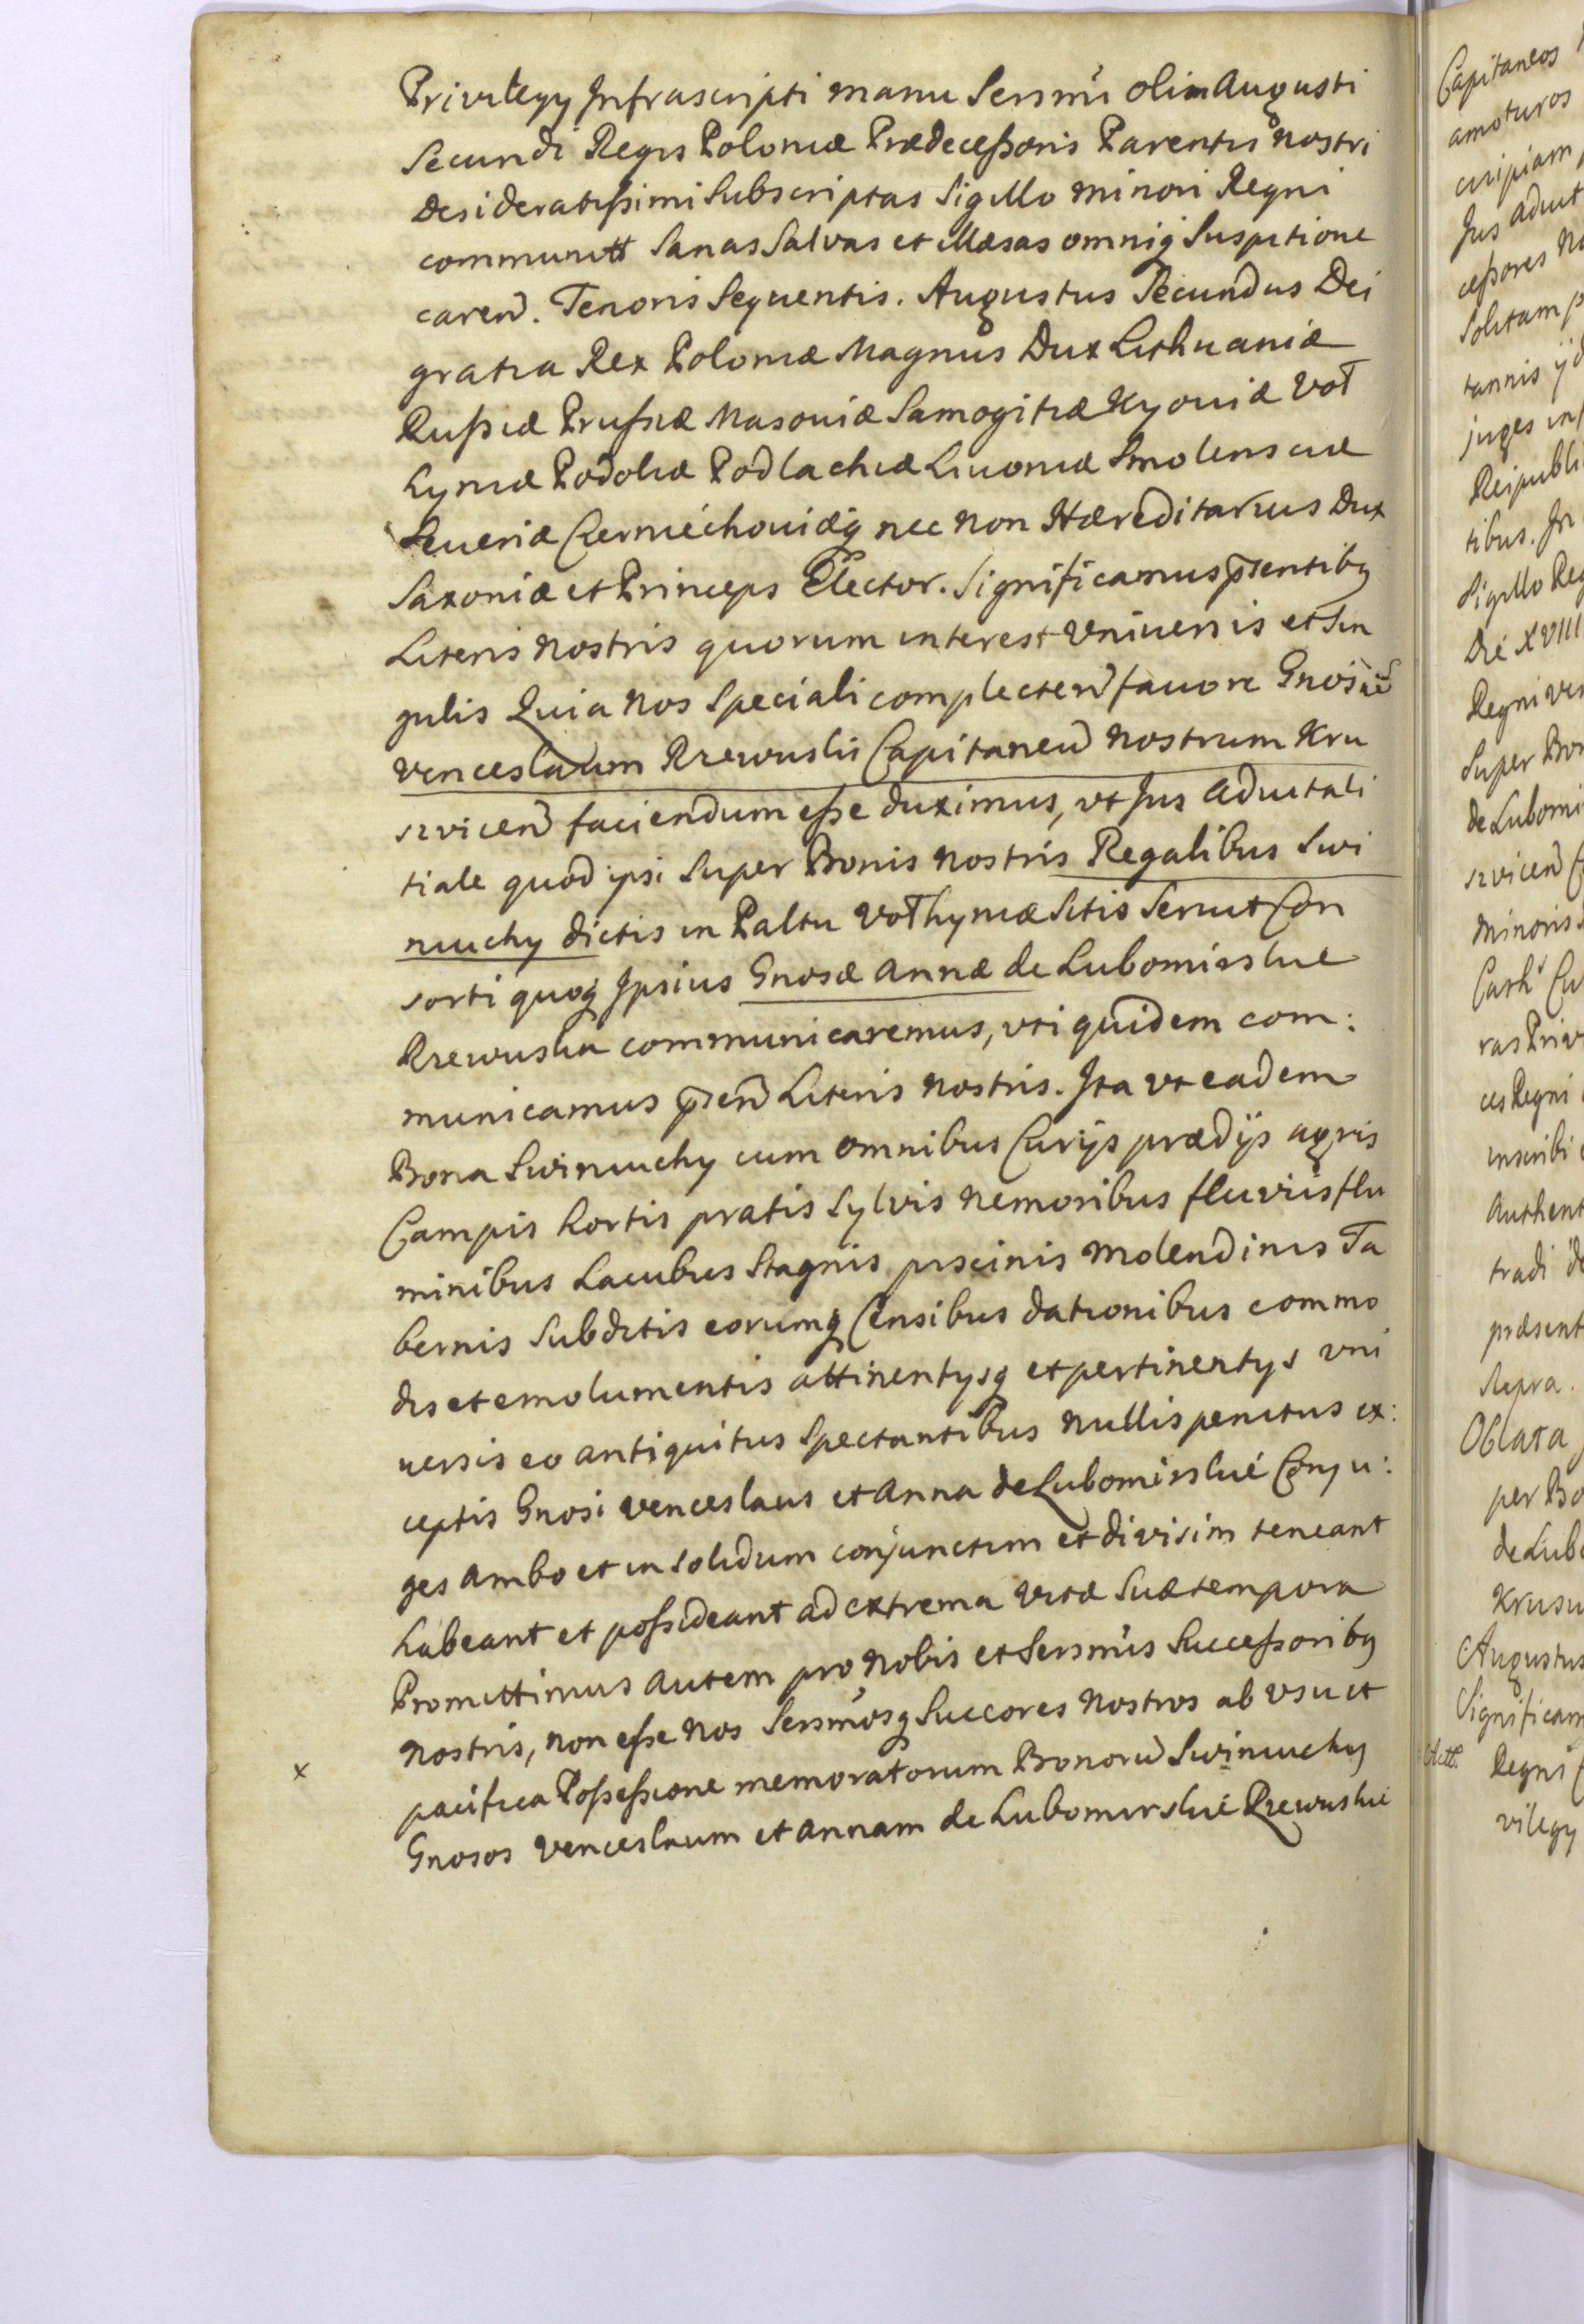 Privilegy Infrascripti manu Sersmi olim Augusti
Secundi Regis Poloniæ Prædecessoris Parentis Nostri
Desideratissimi Subscriptas Sigillo minori Regni
communitt Sanas Salvas et illæsas omniq Suspitione
caren. Tenoris Sequentis. Augustus Secundus Dei
gratia Rex Poloniæ Magnus Dux Lithuaniæ
Russiæ Prussiæ Masouiæ Samogitiæ Kyouiæ Vol
hyniæ Podoliæ Podlachiæ Liuoniæ Smolensciæ
Seueriæ Czerniéchouiæq nec non Hæreditarius Dux
Saxoniæ et Princeps Elector. Significamus pñsentibq
Literis Nostris quorum interest Vniuersis et Sin
gulis Quia Nos Speciali complecten fauore Gnosũ
Venceslaum Rzewuski Capitaneũ Nostrum Kru
szvicen faciendum esse duximus, vt Jus aduitali
tiale quod ipsi Super Bonis Nostris Regalibus Swi
niuchy dictis in Paltu Volhyniæ Sitis Seruit Con
sorti quoq Ipsius Gnosæ Annæ de Lubomirskie
Rzewuska communicaremus, vti quidem com:
municamus pñsen Literis Nostris. Ita vt eadem
Bona Swiniuchy cum omnibus Curijs prædijs agris
Campis hortis pratis Sylvis Nemoribus fluvijs flu
minibus Lacubus Stagnis piscinis Molendinis Ta
bernis Subditis eorumq Censibus dationibus commo
dis et emolumentis attinentysq et pertinentys vni
uersis eo antiquitus Spectantibus Nullis penitus ex:
ceptis Gnosi Venceslaus et Anna de Lubomirskié Conju:
ges ambo et in solidum conjunctim et divisim teneant
habeant et possideant ad extrema vitæ Suæ tempora
Promittimus autem pro Nobis et Sersmis Successoribq
Nostris, non esse Nos Sersmosq Succores Nostros ab vsu et
x pacifica Possessione memoratorum Bonorũ Swiniuchy
Gnosos Venceslaum et Annam de Lubomirskié Rzewuskie
Capitaneos
amoturos
cuipiam
Jus aduit
cessores No
Solitam p
tannis ijd
juges in
Reipubli
tibus. In
Sigillo Reg
Die XVIII
Regni
Super Bon
de Lubomi
szvicen C
Minoris
Cu
ras Privi
ces Regni
inscribi
Authent
tradi de
præsent
Supra.
Oblata
per Bo
de Lubo
Krusu
Augustus
Significam
Regni
vilegy